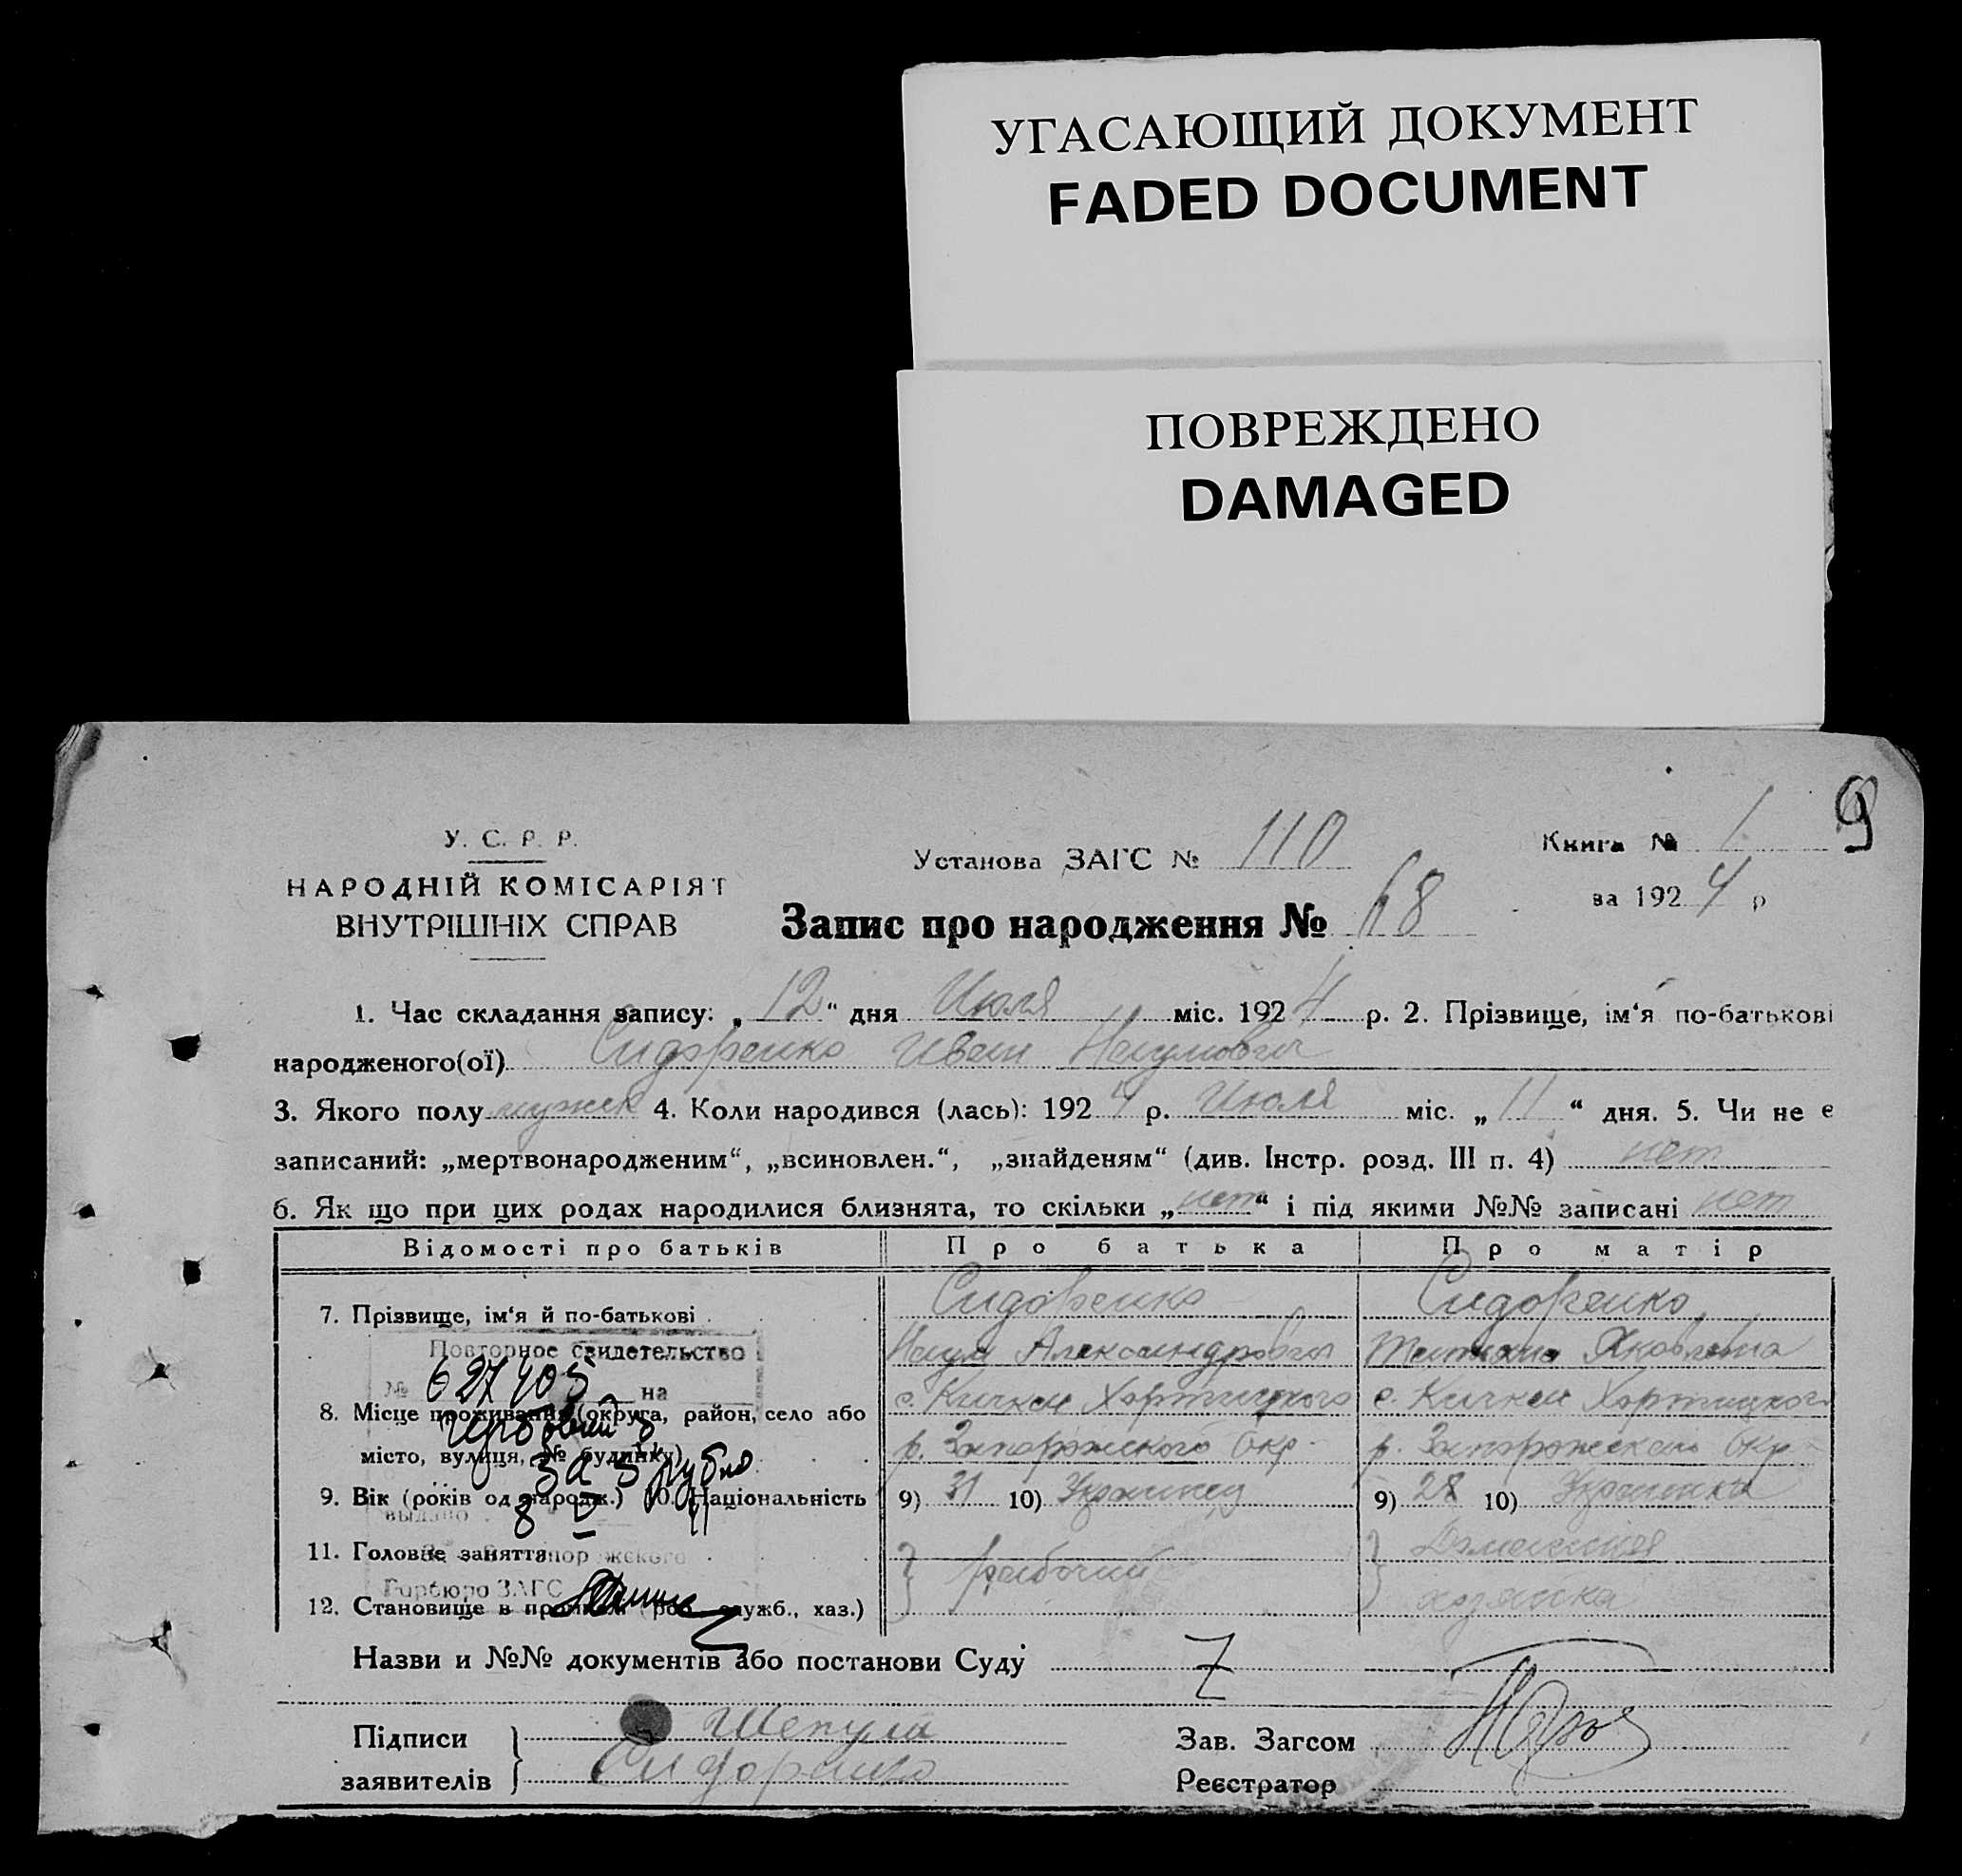 УГАСАЮЩИЙ ДОКУМЕНТ
FADED DOCUMENT
ПОВРЕЖДЕНО
DAMAGED
9
У. С. Р. Р.
НАРОДНІЙ КОМІСАРІЯТ
ВНУТРІШНІХ СПРАВ
Установа ЗАГС № 110
Книга № 1
за 1924 р
Запис про народження № 68
1. Час складання запису: „12“ дня Июля міс. 1924 р. 2. Прізвище, ім‘я по-батькові
народженого(ої) Сидоренко Иван Наумович
3. Якого полу мужск 4. Коли народився (лась): 1924 р. Июля міс. „11“ дня. 5. Чи не є
записаний: „мертвонародженим“, „всиновлен.“, „знайденям“ (див. Інстр. розд. III п. 4) нет
6. Як що при цих родах народилися близнята, то скільки „нет“ і під якими №№ записані нет
Відомості про батьків Про батька Про матір
7. Прізвище, ім‘я й по-батькові Сидоренко Сидоренко
Наум Александрович Татиана Яковлевна
Повторное свидетельство
№ 627405 на
с. Кичкас Хортицкого с. Кичкас Хортицкого
8. Місце проживання (округа, район, село або
місто, вулиця, № будинку) р. Запорожского Окр. р. Запорожского Окр.
за 3 рубло
9. Вік (років од народж.) 10. Національність 9) 31 10) Украинец 9) 28 10) Украинка
выдано 8 V
11. Головне заняття рабочий Домашняя
хозяйка
Горбюро ЗАГС
12. Становище в промислі (роб., служб., хаз.)
Назви и №№ документів або постанови Суду Z
Підписи Шепула
заявителів Сидоренко
Зав. Загсом
Реєстратор